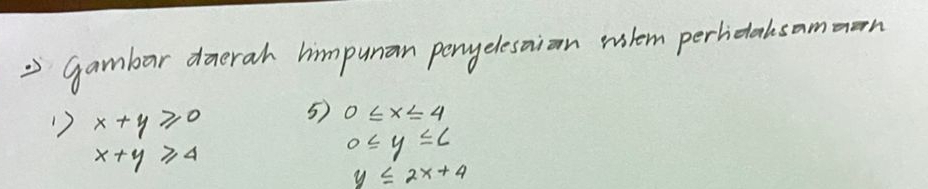 •) Gambar daerah himpunan penyelesaian sistem pertidaksamaan
1) x + y ≥ 0
x + y ≥ 4
5) 0 ≤ x ≤ 4
0 ≤ y ≤ 6
y ≤ 2x + 4